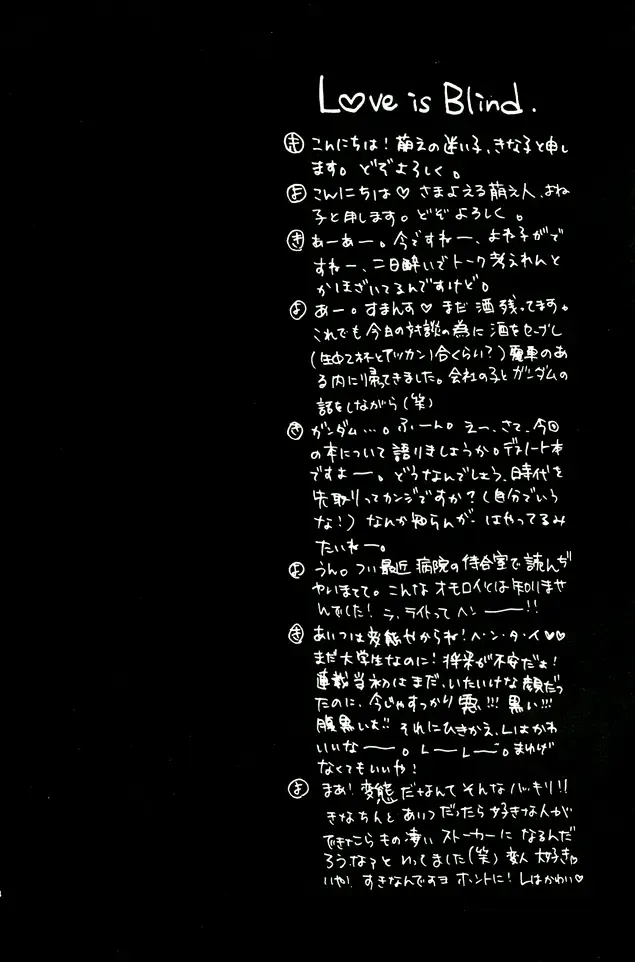 Love is Blind.
き こんにちは！萌えの迷い子、きな子と申し
ます。どぞよろしく。
よ こんにちは♡ さまよえる萌え人、よね
子と申します。どぞよろしく。
き あーあー。今ですねー、よね子がで
すねー、二日酔いでトーク考えれんと
かほざいてるんですけど。
よ あー。すまんす♡ まだ酒残ってます。
これでも今日の対談の為に酒をセーブし
(生中2杯とアツカン1合くらい？)電車のあ
る内に帰ってきました。会社の子とガンダムの
話をしながら(笑)
き ガンダム…。ふーん。えー、さて、今回
の本について語りましょうか。デスノート本
ですよー。どうなんでしょう、時代を
先取りってカンジですか？(自分でいう
な！)なんか知らんが、はやってるみ
たいねー。
よ うん。つい最近病院の待合室で読んぢ
ゃいまてて。こんなオモロイとは知りませ
んでした！ラ、ライトってヘンーー!!
き あいつは変態やからね！ヘ・ン・タ・イ♡♡
まだ大学生なのに！将来が不安だよ！
連載当初はまだ、いたいけな顔だっ
たのに、今じゃすっかり悪い!!! 黒い!!!
腹黒いよ!! それにひきかえ、Lはかわ
いいなーー。LーLー。まゆげ
なくてもいいや！
よ まあ！変態だなんてそんなバッキリ!!
きなちんとあいつだったら好きな人が
できたらもの凄いストーカーになるんだ
ろうなァといってました(笑)変人大好き♡
いや、すきなんですヨホントに！Lはかわいい♡